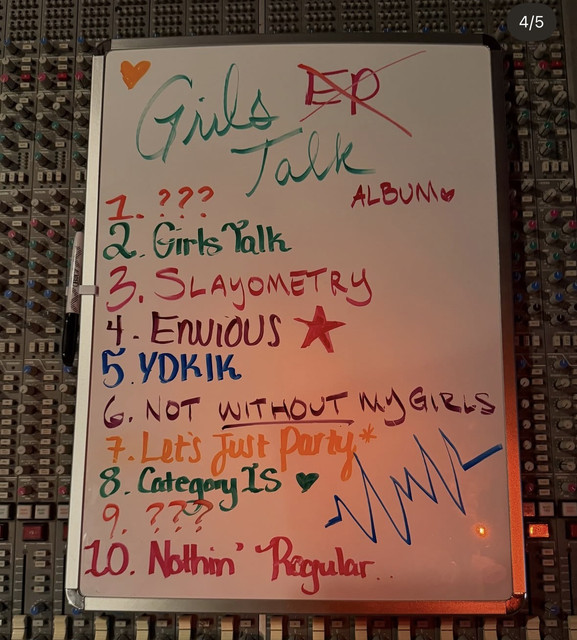 4/5
Girls EP
Talk
ALBUM
1. ???
2. Girls Talk
3. SLAYOMETRY
4. ENVIOUS
5. YDKIK
6. NOT WITHOUT MY GIRLS
7. Let's Just Party*
8. Category IS
9. ???
10. Nothin' Regular..